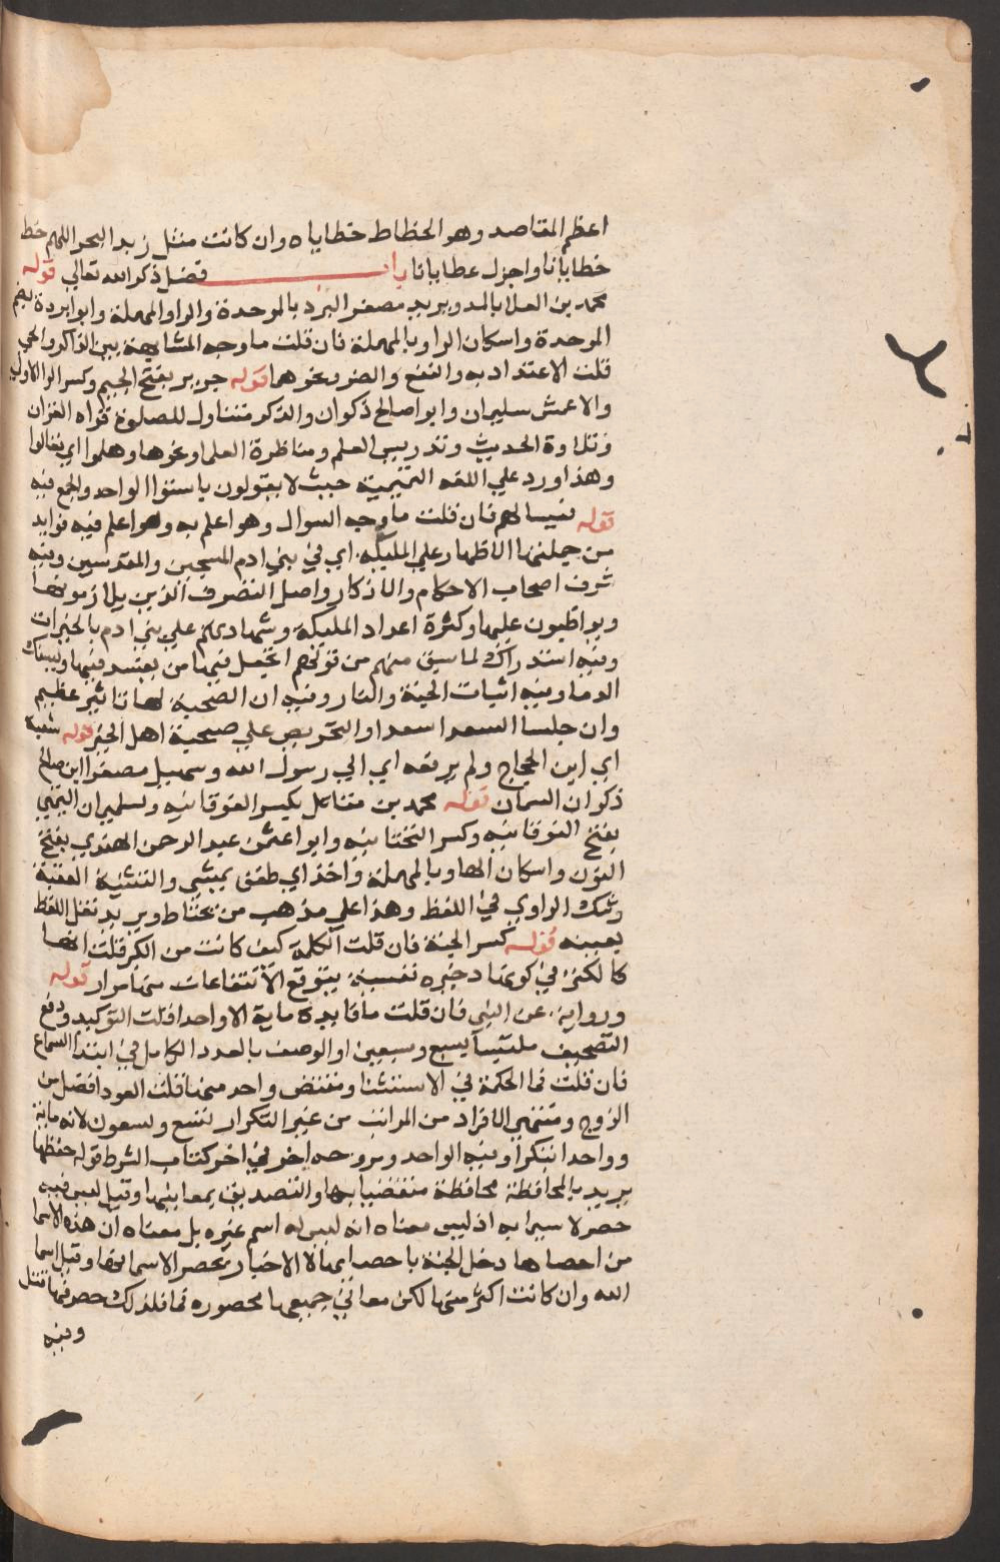 اعظم المقاصد وهو الحظاط خطاياه وان كانت مثل زبد البحر اللهم حط
خطايانا واجزل عطايانا باب فضل ذكر الله تعالي قوله
محمد بن العلا بالمد وبريد مصغر البرد بالموحدة والرا والمهملة وابو ابردة بضم
الموحدة واسكان الرا وبالمهملة فان قلت ما وجه المشابهة بين الذاكر والحي
قلت الاعتداد به والنفع والضر ونحوهما قوله جرير بفتح الجيم وكسر الرا الاولي
والاعمش سليمان وابو اصالح ذكوان والذكر متناول للصلوة قراه القران
وتلاوة الحديث وتدريس العلم ومناظرة العلما ونحوها وهلموا اي تعالوا
وهذا ورد علي اللغه التميمية حيث لا يقولون باستوا الواحد والجمع فيه
قوله فيسالهم فان قلت ما وجه السوال وهو اعلم به وهو اعلم فيه فوايد
من جملتها الاظهار علي المليكه اي في بني ادم المسبحين والمقدسين وفيه
شرف اصحاب الاحكام والاذكار واصل التصرف الذين يلازمونها
ويواظبون عليها وكثرة اعداد المليكة وشهادتهم علي بني ادم بالخيرات
وفيه استدراك لما سبق منهم من قولهم اتجعل فيها من يفسد فيها ويسفك
الدما وفيه اثبات الجنة والنار وفيه ان الصحبة لها تاثير عظيم
وان جلسا السعدا سعدا والتحريض علي صحبة اهل الخير قوله شعبة
اي ابن الحجاج ولم يرفعه اي الي رسول الله وسهيل مصغرا ابن صالح
ذكوان السمان قوله محمد بن مقاتل بكسر الفوقانيه وسليمان التيمي
بفتح الفوقانيه وكسر التحتانيه وابو اعثمن عبد الرحمن الهندي بفتح
النون واسكان الها وبالمهملة واخذ اي طفق يمشي والتثنية العقبة
وشك الراوي في اللفظ وهذا علي مذهب من يحتاط ويريد نقل اللفظ
بعينه قوله كسر الجنة فان قلت الكلمة كيف كانت من الكنز قلت انها
كالكنز في كونها دخيره نفسية يتوقع الانتفاعات منها مرار قوله
ورواية عن النبي فان قلت ما فايدة ماية الا واحدا قلت التوكيد ودفع
التصحيف ملتبسا بسبع وسبعين او الوصف بالعدد الكامل في ابتدا السماع
فان قلت فما الحكمة في الاستثنا ومنقض واحد منها قلت العود افضل من
الزوج ومنتهي الافراد من المراتب من غير التكرار تسع وتسعون لانه ماية
وواحدا يتكرر وفيه الواحد ومر وجه اخر في اخر كتاب الشرط قوله حفظها
يريد بالمحافظة محافظة منقضيا بها والتصديق بمعانيها وقيل ليس فيه
حصر لاسيما به اذ ليس معناه انه ليس له اسم غيره بل معناه ان هذه الاسما
من احصاها دخل الجنة باحصايها لا الاخبار بحصر الاسما فيها وقيل اسما
الله وان كانت اكثر منها لكن معاني جميعها محصوره فما فلذلك حصر فيها قيل
وفيه